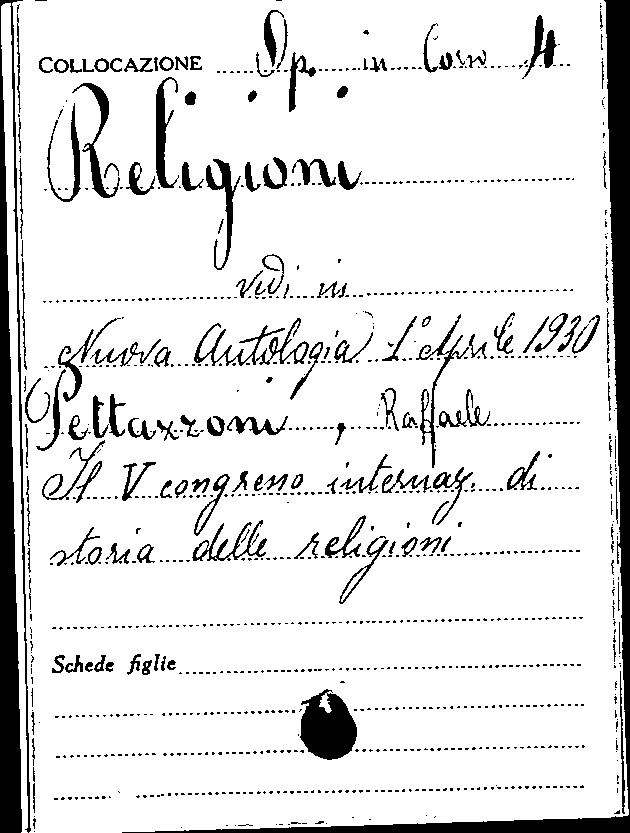 COLLOCAZIONE Op. in Corso 4
Religioni
vedi in
Nuova Antologia 1° Aprile 1930
Pettazzoni, Raffaele
Il V congresso internaz. di
storia delle religioni
Schede figlie